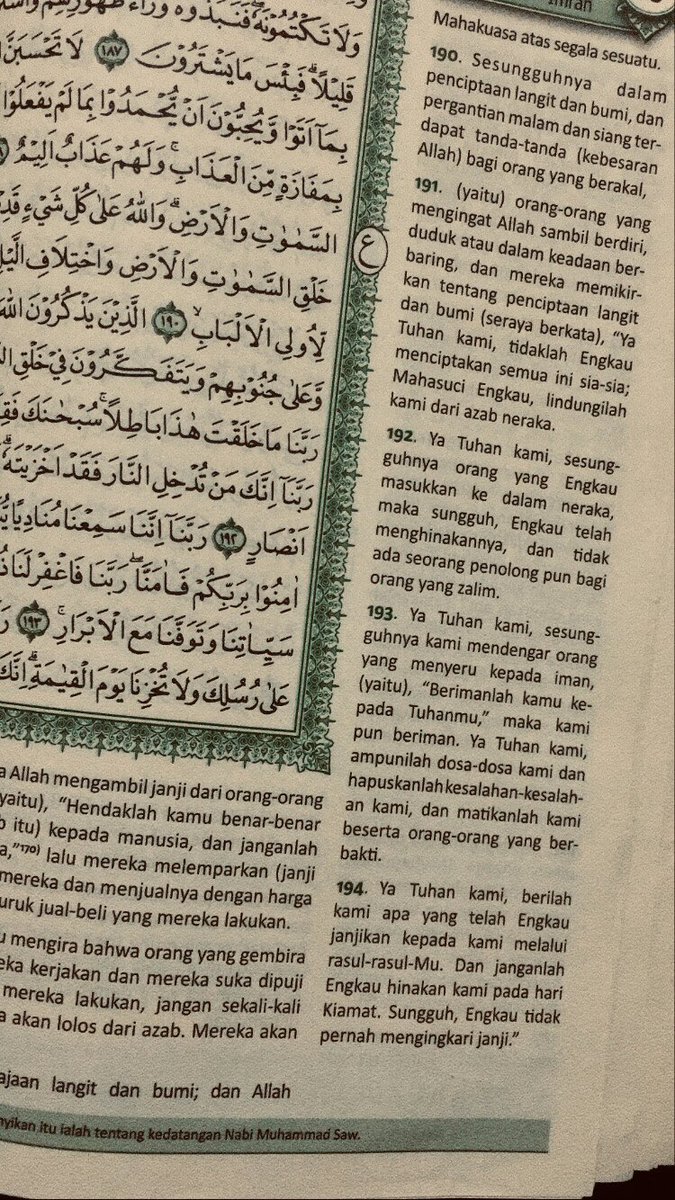 Imran
وَلَا تَكْتُمُوْنَهٗۖ فَنَبَذُوْهُ وَرَاۤءَ ظُهُوْرِهِمْ
قَلِيْلًاۗ فَبِئْسَ مَا يَشْتَرُوْنَ ١٨٧ لَا تَحْسَبَنَّ
بِمَآ اَتَوْا وَّيُحِبُّوْنَ اَنْ يُّحْمَدُوْا بِمَا لَمْ يَفْعَلُوْا
بِمَفَازَةٍ مِّنَ الْعَذَابِۚ وَلَهُمْ عَذَابٌ اَلِيْمٌ
السَّمٰوٰتِ وَالْاَرْضِۗ وَاللّٰهُ عَلٰى كُلِّ شَيْءٍ
خَلْقِ السَّمٰوٰتِ وَالْاَرْضِ وَاخْتِلَافِ
لِّاُولِى الْاَلْبَابِۙ ١٩٠ الَّذِيْنَ يَذْكُرُوْنَ اللّٰهَ
وَّعَلٰى جُنُوْبِهِمْ وَيَتَفَكَّرُوْنَ فِيْ خَلْقِ
رَبَّنَا مَا خَلَقْتَ هٰذَا بَاطِلًاۚ سُبْحٰنَكَ
رَبَّنَآ اِنَّكَ مَنْ تُدْخِلِ النَّارَ فَقَدْ اَخْزَيْتَهٗۗ
اَنْصَارٍ ١٩٢ رَبَّنَآ اِنَّنَا سَمِعْنَا مُنَادِيًا
اٰمِنُوْا بِرَبِّكُمْ فَاٰمَنَّاۖ رَبَّنَا فَاغْفِرْ لَنَا
سَيِّاٰتِنَا وَتَوَفَّنَا مَعَ الْاَبْرَارِۚ ١٩٣
عَلٰى رُسُلِكَ وَلَا تُخْزِنَا يَوْمَ الْقِيٰمَةِۗ اِنَّكَ
ع
Mahakuasa atas segala sesuatu.
190. Sesungguhnya dalam
penciptaan langit dan bumi, dan
pergantian malam dan siang ter-
dapat tanda-tanda (kebesaran
Allah) bagi orang yang berakal,
191. (yaitu) orang-orang yang
mengingat Allah sambil berdiri,
duduk atau dalam keadaan ber-
baring, dan mereka memikir-
kan tentang penciptaan langit
dan bumi (seraya berkata), "Ya
Tuhan kami, tidaklah Engkau
menciptakan semua ini sia-sia;
Mahasuci Engkau, lindungilah
kami dari azab neraka.
192. Ya Tuhan kami, sesung-
guhnya orang yang Engkau
masukkan ke dalam neraka,
maka sungguh, Engkau telah
menghinakannya, dan tidak
ada seorang penolong pun bagi
orang yang zalim.
193. Ya Tuhan kami, sesung-
guhnya kami mendengar orang
yang menyeru kepada iman,
(yaitu), "Berimanlah kamu ke-
pada Tuhanmu," maka kami
pun beriman. Ya Tuhan kami,
ampunilah dosa-dosa kami dan
hapuskanlah kesalahan-kesalah-
an kami, dan matikanlah kami
beserta orang-orang yang ber-
bakti.
194. Ya Tuhan kami, berilah
kami apa yang telah Engkau
janjikan kepada kami melalui
rasul-rasul-Mu. Dan janganlah
Engkau hinakan kami pada hari
Kiamat. Sungguh, Engkau tidak
pernah mengingkari janji."
a Allah mengambil janji dari orang-orang
yaitu), "Hendaklah kamu benar-benar
b itu) kepada manusia, dan janganlah
a,"170) lalu mereka melemparkan (janji
mereka dan menjualnya dengan harga
uruk jual-beli yang mereka lakukan.
u mengira bahwa orang yang gembira
eka kerjakan dan mereka suka dipuji
mereka lakukan, jangan sekali-kali
a akan lolos dari azab. Mereka akan
ajaan langit dan bumi; dan Allah
nyikan itu ialah tentang kedatangan Nabi Muhammad Saw.